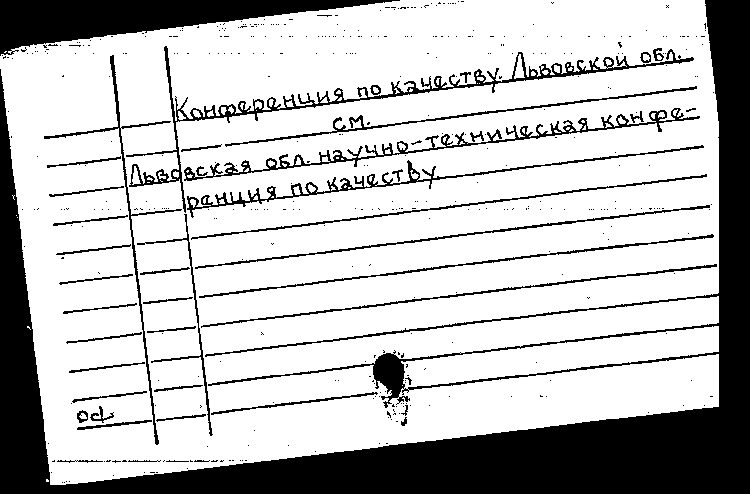 Конференция по качеству. Львовской обл.
см.
Львовская обл. научно-техническая конфе-
ренция по качеству.